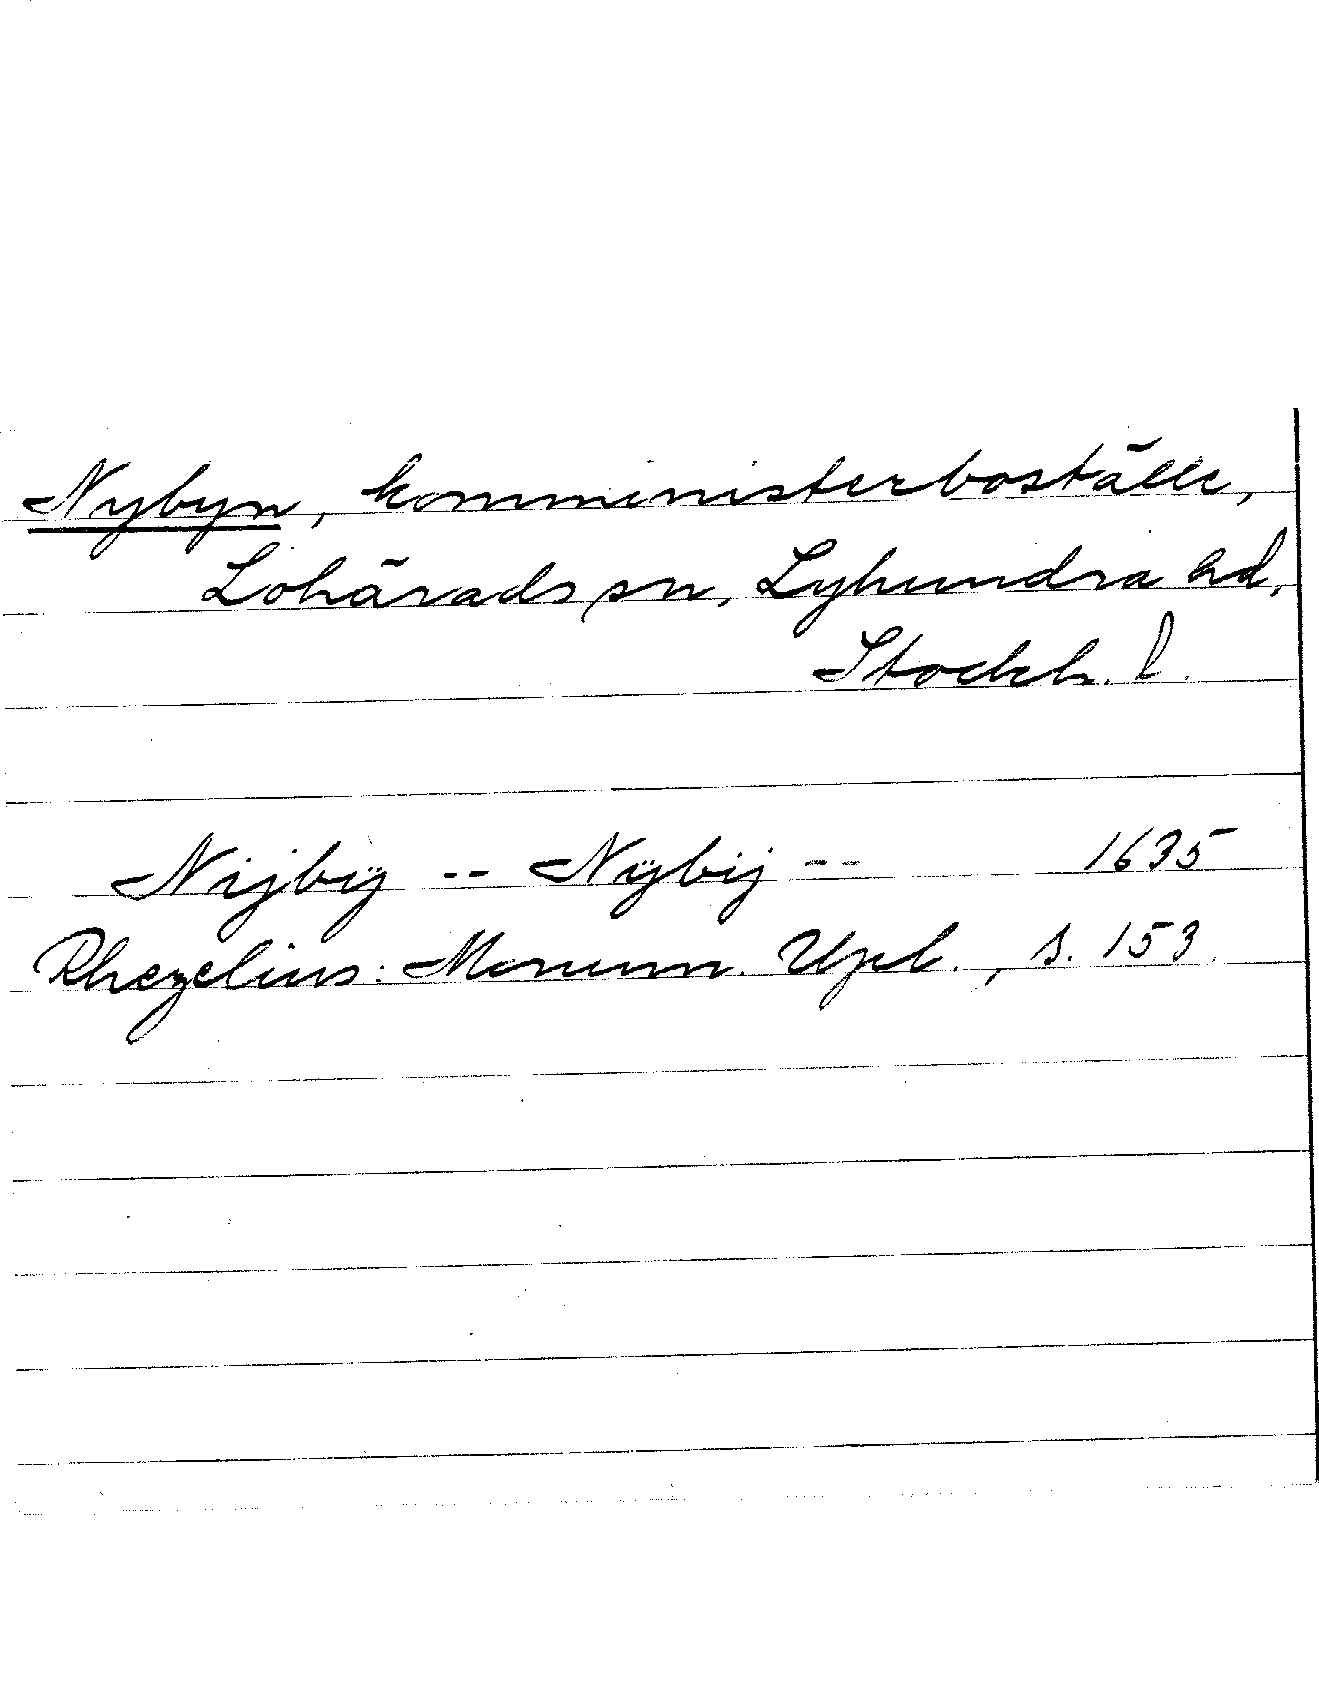 Nybyn, komministerboställe,
Lohärads sn, Lyhundra hd,
Stockh. l.
Nijbÿ -- Nÿbij -- 1635
Rhezelius: Monum. Upl., s. 153.